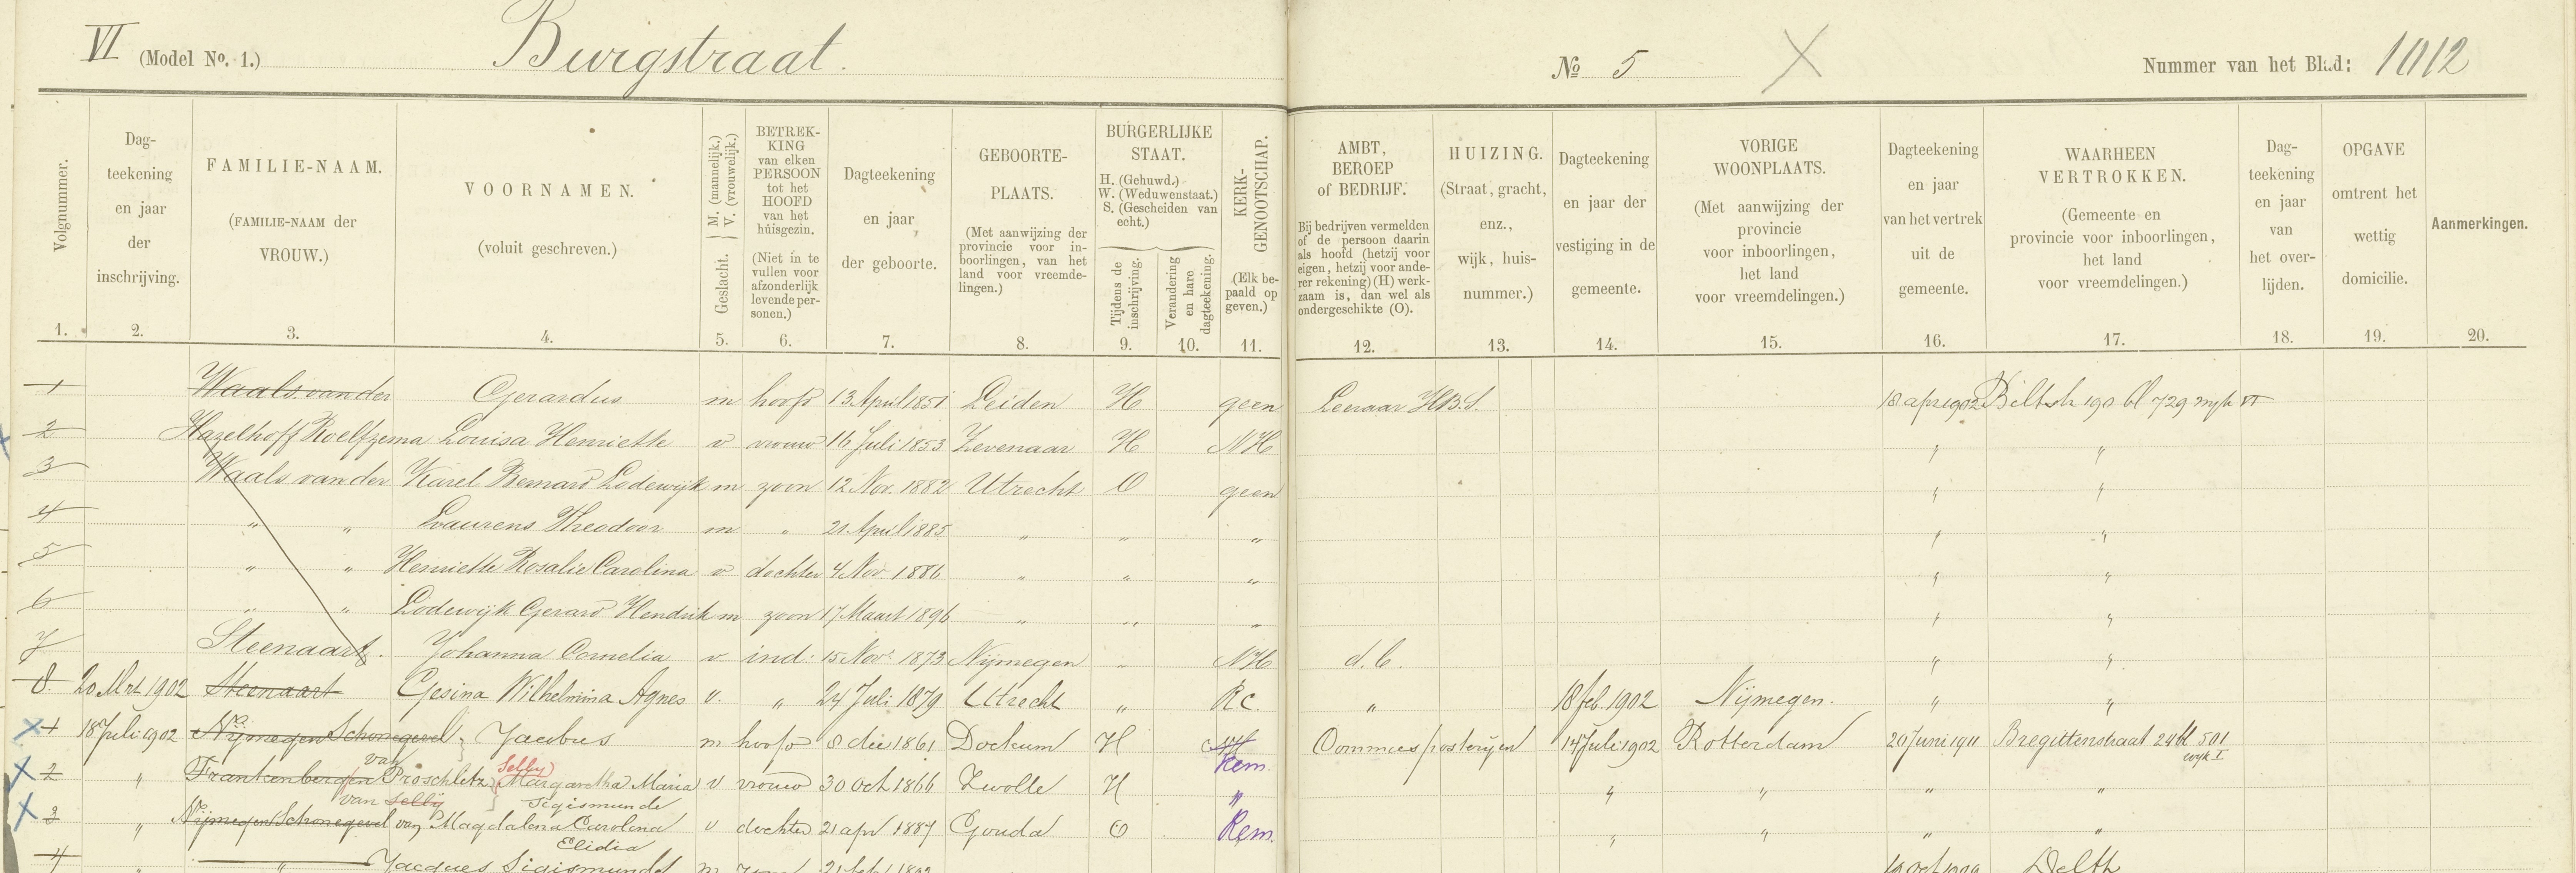 VI (Model No. 1.) Burgstraat. No 5 Nummer van het Blad: 1012
Volgnummer.
1.
Dag-
teekening
en jaar
der
inschrijving.
2.
FAMILIE-NAAM.
(FAMILIE-NAAM der
VROUW.)
3.
VOORNAMEN.
(voluit geschreven.)
4.
Geslacht. { M. (mannelijk.)
V. (vrouwelijk.)
5.
BETREK-
KING
van elken
PERSOON
tot het
HOOFD
van het
huisgezin.
(Niet in te
vullen voor
afzonderlijk
levende per-
sonen.)
6.
Dagteekening
en jaar
der geboorte.
7.
GEBOORTE-
PLAATS.
(Met aanwijzing der
provincie voor in-
boorlingen, van het
land voor vreemde-
lingen.)
8.
BURGERLIJKE
STAAT.
H. (Gehuwd.)
W. (Weduwenstaat.)
S. (Gescheiden van
echt.)
Tijdens de
inschrijving.
9.
Verandering
en hare
dagteekening.
10.
KERK-
GENOOTSCHAP.
(Elk be-
paald op
geven.)
11.
AMBT,
BEROEP
of BEDRIJF.
Bij bedrijven vermelden
of de persoon daarin
als hoofd (hetzij voor
eigen, hetzij voor ande-
rer rekening) (H) werk-
zaam is, dan wel als
ondergeschikte (O).
12.
HUIZING.
(Straat, gracht,
enz.,
wijk, huis-
nummer.)
13.
Dagteekening
en jaar der
vestiging in de
gemeente.
14.
VORIGE
WOONPLAATS.
(Met aanwijzing der
provincie
voor inboorlingen,
het land
voor vreemdelingen.)
15.
Dagteekening
en jaar
van het vertrek
uit de
gemeente.
16.
WAARHEEN
VERTROKKEN.
(Gemeente en
provincie voor inboorlingen,
het land
voor vreemdelingen.)
17.
Dag-
teekening
en jaar
van
het over-
lijden.
18.
OPGAVE
omtrent het
wettig
domicilie.
19.
Aanmerkingen.
20.
1 Waals van der Gerardus m hoofd 13 April 1851 Leiden H geen Leeraar H.B.S. 18 apr 1902 Biltsch 190 bl 729 wijk VI
2 Hazelhoff Roelfzema Louisa Henriette v vrouw 16 Juli 1853 Zevenaar H NH " "
3 Waals van der Karel Bernard Lodewijk m zoon 12 Nov. 1882 Utrecht O geen " "
4 " " Laurens Theodoor m " 21 April 1885 " " " " "
5 " " Henriette Rosalie Carolina v dochter 4 Nov. 1886 " " " " "
6 " " Lodewijk Gerard Hendrik m zoon 17 Maart 1896 " " " " "
7 Steenaart. Johanna Cornelia v ind: 15 Nov. 1873 Nijmegen " NH d.b. " "
8. 20 Mrt 1902 Steenaart Gesina Wilhelmina Agnes v. " 24 Juli 1879 Utrecht " RC. " 18 feb. 1902 Nijmegen. " "
1 18 Juli 1902 Nijmegen Schonegevel Jacobus m hoofd 8 dec 1861 Dockum H NH Rem. Commies posterijen 14 Juli 1902 Rotterdam 20 Juni 1911 Bregittenstraat 24 bl 501 wijk I
van Selby
2 " Frankenberg en Proschlitz Margaretha Maria v vrouw 30 oct 1866 Zwolle H " " " " "
van Selby Sigismunde
3 " Nijmegen Schonegevel van Magdalena Carolina v dochter 21 apr 1887 Gouda O Rem. " " " "
Elidia
4 " " Jacques Sigismunde m zoon Delft